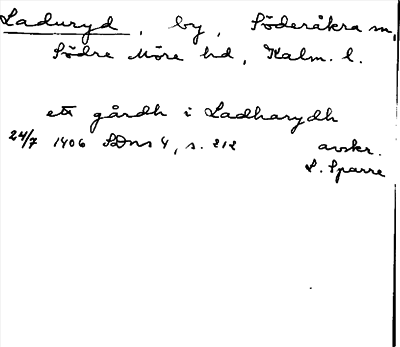 Laduryd, by, Söderåkra sn,
Södre Möre hd, Kalm. l.
ett gårdh i Ladharydh
24/7 1406 SDns 4, s. 212 avskr.
L. Sparre